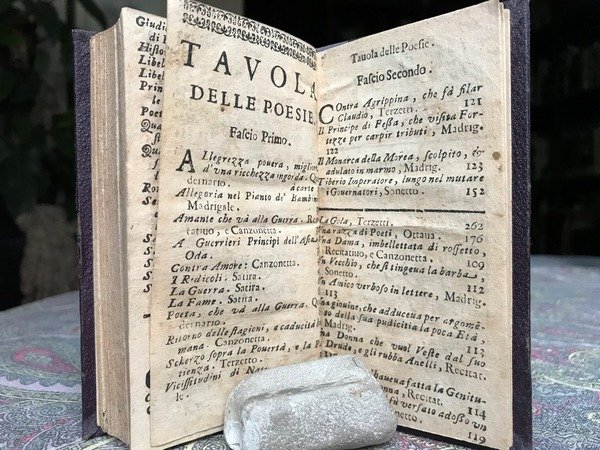 Giudi
di
Histo
Libel
Libel
Prin
le
Poet
Qua
st
Ro
Se
TAVOLA
DELLE POESIE
Fascio Primo.
ALlegrezza pouera, miglior
d'una ricchezza ingorda. Qu
dernario. a carte
Allegoria nel Pianto de' Bambini
Madrigale.
Amante che và alla Guerra. Re
tatiuo, e Canzonetta.
A Guerrieri Principi dell'Asia
Oda.
Contra Amore: Canzonetta.
I Ridicoli. Satira.
La Guerra. Satira.
La Fame. Satira.
Poeta, che và alla Guerra. Q
dernario.
Ritorno delle stagioni, e caducità
mana Canzonetta.
Scherzo sopra la Pouertà, e la P
tienza. Terzetto.
Vicissitudini di Na
le.
Tauola delle Poesie.
Fascio Secondo.
COntra Agrippina, che fà filar
Claudio, Terzetti. 121
Il Principe di Festa, che visita For
tezze per carpir tributi, Madrig.
122
Il Monarca della Mirea, scolpito, &
adulato in marmo, Madrig. 123
Tiberio Imperatore, lungo nel mutare
i Gouernatori, Sonetto. 152
La Gola, Terzetti. 262
una razza di Poeti, Ottaua. 176
na Dama, imbellettata di rossetto,
Recitatiuo, e Canzonetta. 109
n Vecchio, che si tingeua la barba,
Sonetto. 112
n Amico verboso in lettere, Madrig.
113
na giouine, che adduceua per argomē-
to della sua pudicitia la poca Età,
Madrig. 113
na Donna che vuol Veste dal suo
Drudo, e gli rubba Anelli, Recitat.
lbaueua fatta la Genitu-
donanza, Recitat. 114
fù versato adosso un
onetto. 119